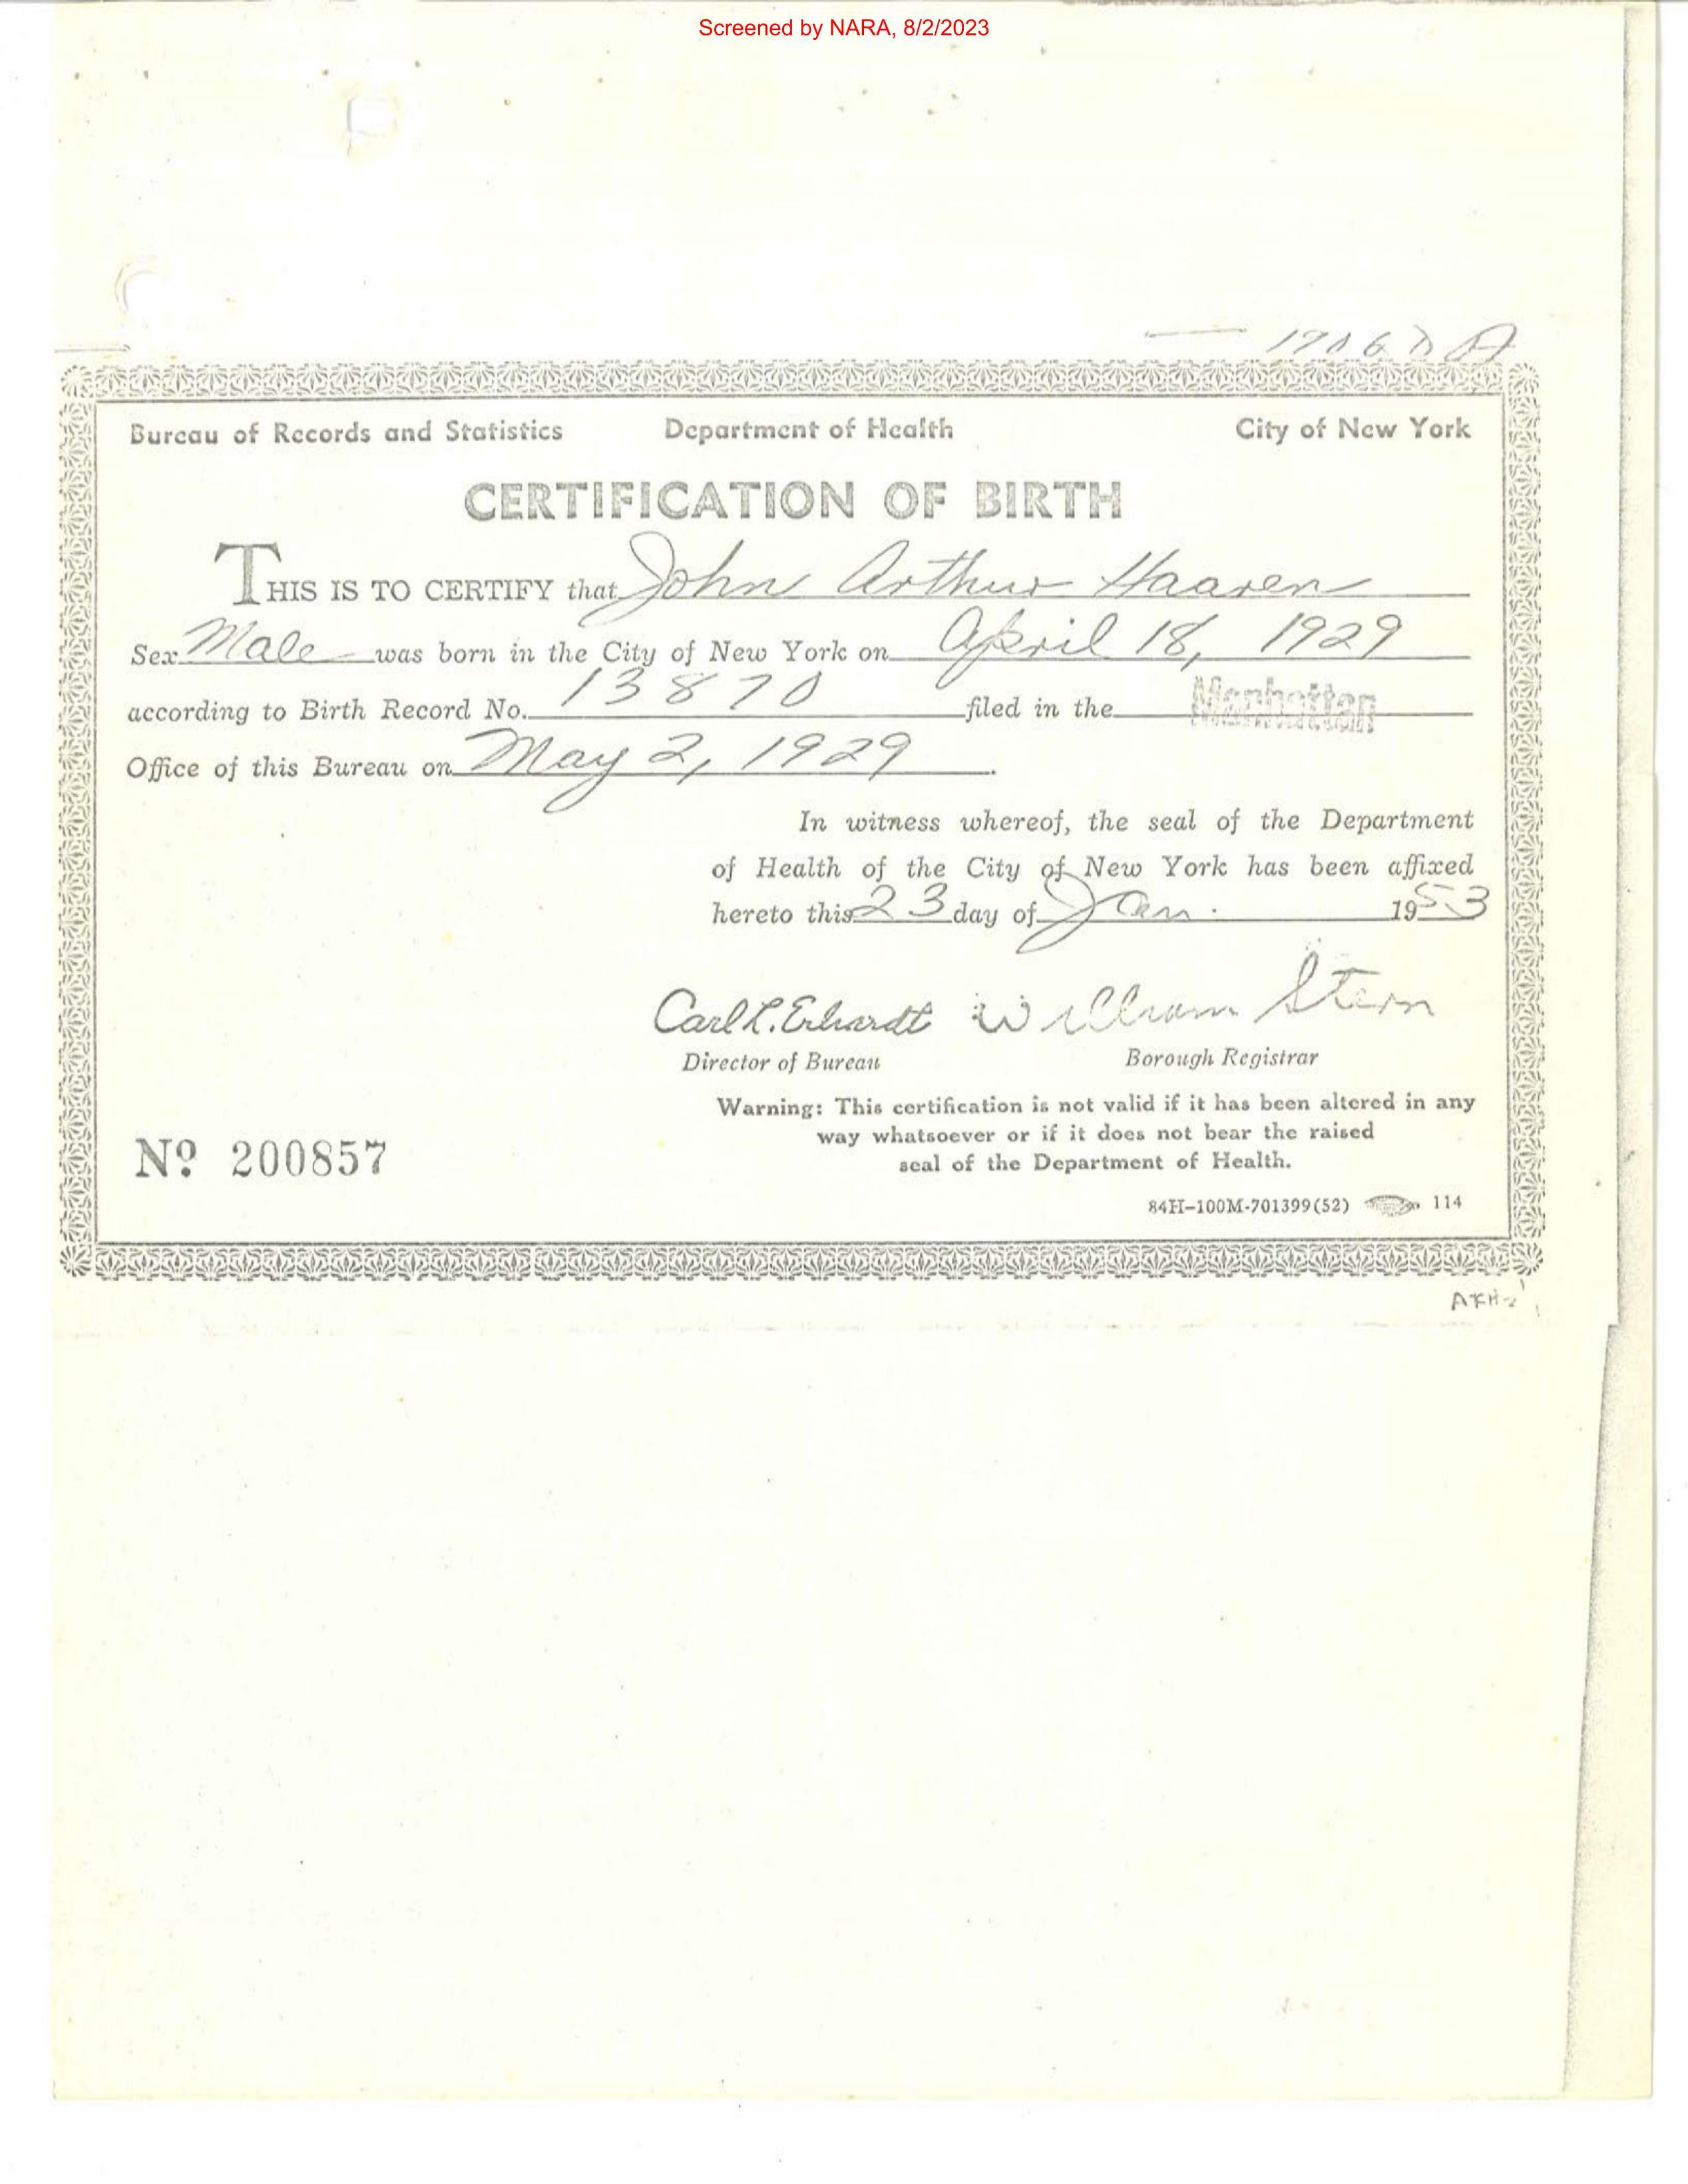 Screened by NARA, 8/2/2023
Bureau of Records and Statistics Department of Health City of New York
CERTIFICATION OF BIRTH
THIS IS TO CERTIFY that John Arthur Haaren
Sex Male was born in the City of New York on April 18, 1929
according to Birth Record No. 13870 filed in the Manhattan
Office of this Bureau on May 2, 1929.
In witness whereof, the seal of the Department
of Health of the City of New York has been affixed
hereto this 23 day of Jan. 1953
Carl L. Erhardt William Stern
Director of Bureau Borough Registrar
Warning: This certification is not valid if it has been altered in any
way whatsoever or if it does not bear the raised
seal of the Department of Health.
Nº 200857
84H-100M-701399(52) 114